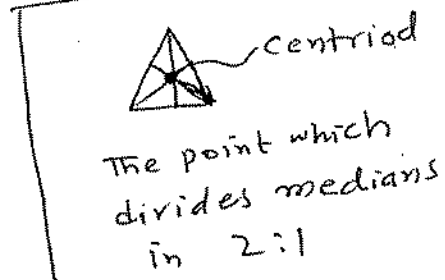 Centriod
The point which
divides medians
in 2:1